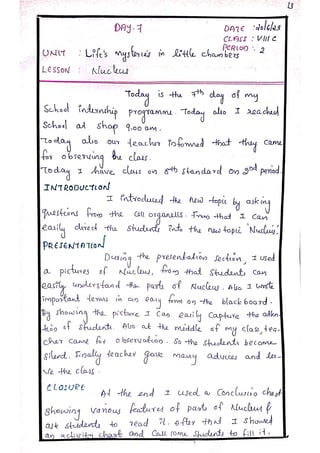 13
DAY. 7
DATE :
CLASS : VIII C
PERIOD : 2
UNIT : Life's mysteries in little chambers
LESSON : Nucleus
Today is the 7th day of my
School internship programme. Today also I reached
School at sharp 9.00 am.
Today also our teacher informed that they came
for observing the class.
Today I have class on 8th standard on 2nd period.
INTRODUCTION
I introduced the new topic by asking
questions from the cell organells. From that I can
easily direct the students into the new topic 'Nucleus'.
PRESENTATION
During the presentation section, I used
a pictures of Nucleus, from that students can
easily understand the parts of Nucleus. Also I wrote
important terms in an easy form on the black board.
By showing the picture I can easily capture the atten
tion of students. Also at the middle of my class, tea-
cher came for observation. So the students become
silent. Finally teacher gave many advices and lea-
ve the class.
CLOSURE
At the end I used a Conclusion chart
showing various features of parts of Nucleus &
ask students to read it. After that I showed
an activity chart and call some students to fill it.